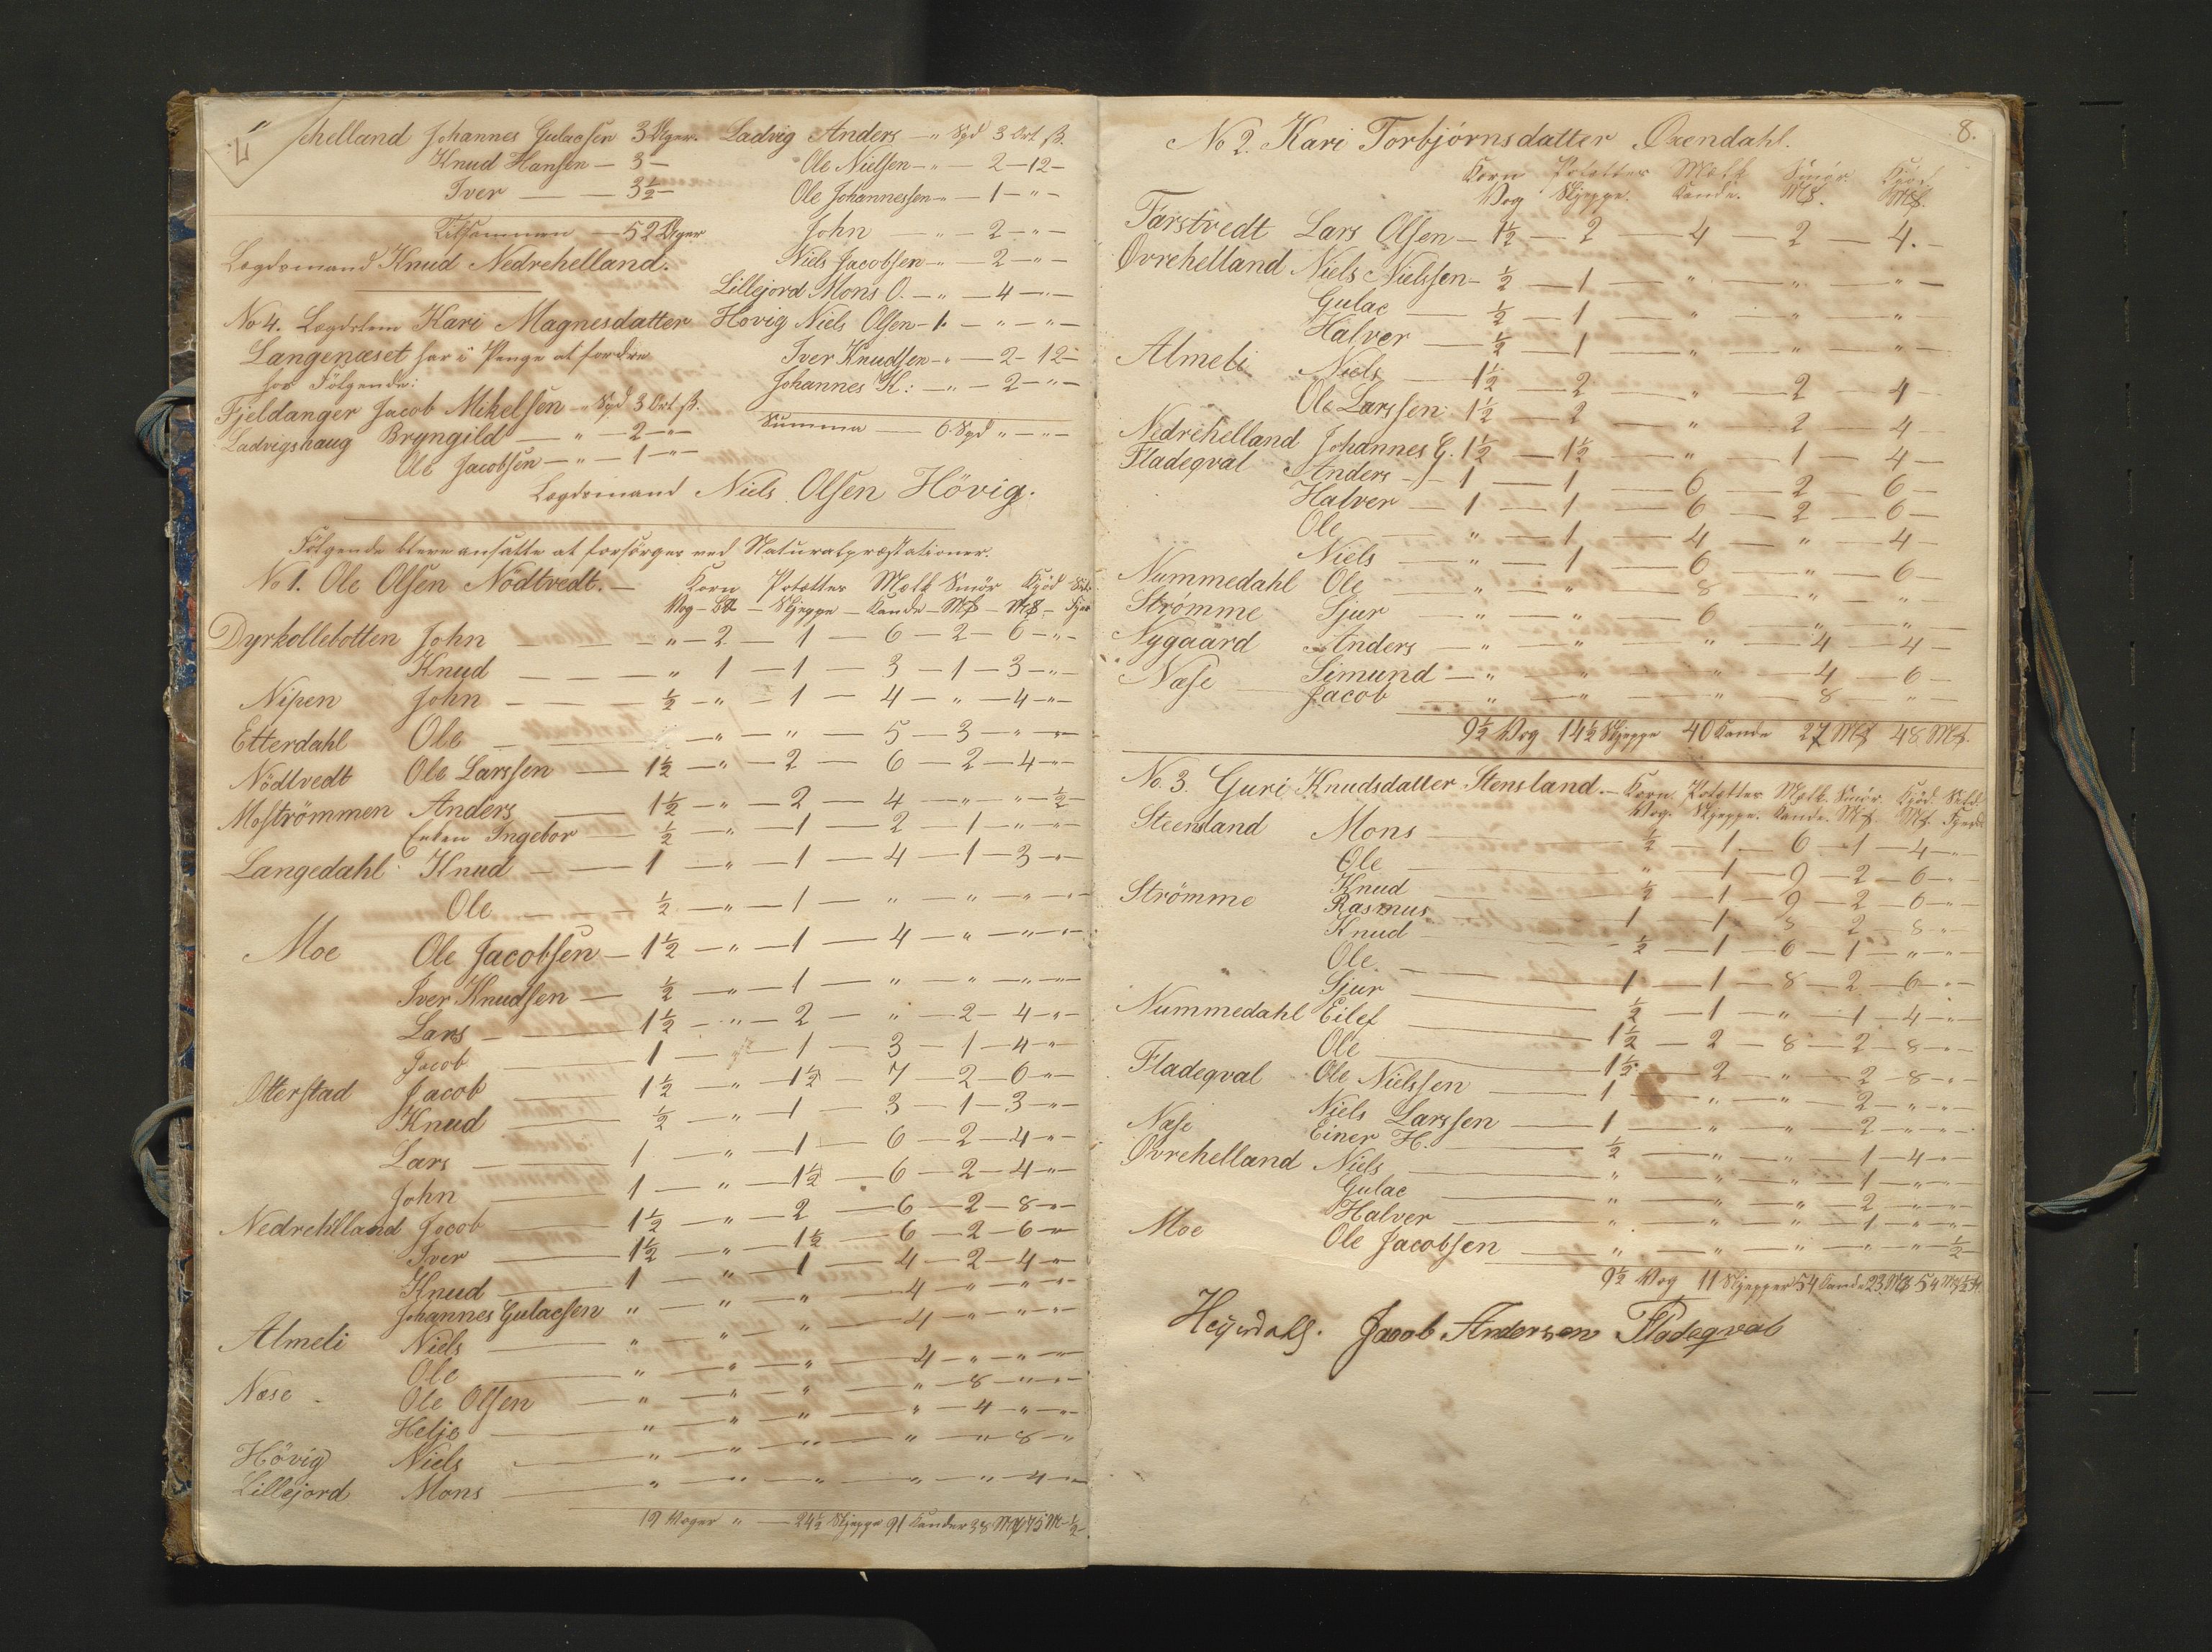 helland Johannes Gulacsen 3 Uger.
Knud Hansen — 3 —
Iver — — 3½ —
Tilsammen — 52 Uger
Lægdsmand Knud Nedrehelland.
No 4. Lægdslem Kari Magnesdatter
Langenæset har i Penge at fordre
hos Følgende:
Fjeldanger Jacob Mikelsen — " Spd 3 Ort ß.
Ladvigshaug Bryngild — — " — 2 — " —
Ole Jacobsen — " — 1 — " —
Ladvig Anders — " Spd 3 Ort ß.
Ole Nielsen — " — 2 — 12 —
Ole Johannessen — " — 1 — " —
John — " — 2 — " —
Niels Jacobsen — " — 2 — " —
Lillejord Mons O. — " — 4 — " —
Hovig Niels Olsen — 1 — " — " —
Iver Knudsen — " — 2 — 12 —
Johannes K: — " — 2 — " —
Summa — 6 Spd " — " —
Lægdsmand Niels Olsen Hövig.
Følgende bleve ansatte at forsørges ved Naturalpræstationer.
No 1. Ole Olsen Nödtvedt. — Korn Potetter Melk Smör Kjöd Sild
Vog — — Skjeppe — Kande — Mk — Mk — Fjer
Dyrkolletbotten John — — — " — 2 — 1 — 6 — 2 — 6 — " —
Knud — — — " 1 — 1 — 3 — 1 — 3 — " —
Nipen John — — — ½ — " — 1 — 4 — " — 4 — " —
Etterdahl Ole — " — " — 5 — 3 — " — " —
Nödtvedt Ole Larssen — 1½ — " — 2 — 6 — 2 — 4 — " —
Moströmmen Anders — 1½ — " — 2 — 4 — " — " — ½ —
Enken Ingebor — ½ — " — 1 — 2 — 1 — " — " —
Langedahl Knud — — 1 — " — 1 — 4 — 1 — 3 — " —
Ole — — — ½ — " — 1 — " — " — " — " —
Moe Ole Jacobsen — 1½ — " — 1 — 4 — " — " — " —
Iver Knudsen — ½ — " — 1 — " — " — " — " —
Lars — 1½ — " — 2 — " — 2 — 4 — " —
Jacob — 1 — — 1 — 3 — 1 — 4 — " —
Otterstad Jacob — 1½ — " — 1½ — 7 — 2 — 6 — " —
Knud — ½ — " — 1 — 3 — 1 — 3 — " —
Lars — 1 — " — 1 — 6 — 2 — 4 — " —
John — 1 — " — 1½ — 6 — 2 — 4 — " —
Nedrehlland Jacob — 1½ — " — 2 — 6 — 2 — 8 — " —
Iver — 1½ — " — 1½ — 6 — 2 — 6 — " —
Knud — 1 — " — 1 — 4 — 2 — 4 — " —
Johannes Gulacsen " — " — " — 4 — " — " — " —
Almeli Niels — " — " — " — 4 — " — " — " —
Ole — " — " — " — 4 — " — " — " —
Næse Ole Olsen — " — " — " — " — 8 — " — " —
Helje — " — " — " — " — 4 — " — " —
Hövig Niels — " — " — " — " — " — 8 — "
Lillejord Mons — " — " — " — " — " — 4 — "
19 Voger " — 24½ Skjeppe 91 Kander 38 Mk 75 M — ½ —
8.
No 2. Kari Torbjörnsdatter Oxendahl.
Korn Potetter Melk Smör. Kjöd
Vog Skjeppe. Kande. Mk. Mk.
Farstvedt Lars Olsen — 1½ — 2 — 4 — 2 — 4. —
Ovrehelland Niels Nielssen — ½ — 1 — " — " — " —
Gulac — ½ — 1 — " — " — " —
Halver — ½ — 1 — " — " — " —
Almeli Niels — 1½ — 2 — " — 2 — 4 —
Ole Larssen 1½ — 2 — " — 2 — 4 —
Nedrehelland Johannes G. 1½ — 1½ — " — 1 — 4 —
Fladeqval Anders — 1 — 1 — 6 — 2 — 6 —
Halver — 1 — 1 — 6 — 2 — 6 —
Ole — " — 1 — 4 — " — 4 —
Niels — " — 1 — 6 — " — 6 —
Nummedahl Ole — " — " — 8 — " — " —
Strømme Sjur — " — " — 6 — " — " —
Nygaard Anders — " — " — " — 4 — 4 —
Næse Simund — " — " — " — 4 — 6 —
Jacob — " — " — " — 8 — " —
9½ Vog 14½ Skjeppe 40 Kande 27 Mk 48 Mk.
No. 3. Guri Knudsdatter Stensland. — Korn Potetter Melk. Smör. Kjöd. Sild.
Vog. Skjeppe. Kande. Mk. Mk. Fjerd
Steensland Mons — ½ — 1 — 6 — 1 — 4 — " —
Ole — " — 1 — 9 — 2 — 6 — " —
Knud — ½ — 1 — 9 — 2 — 6 — " —
Strömme Rasmus — 1 — 1 — 8 — 2 — 8 — " —
Knud — ½ — 1 — 6 — 1 — " — " —
Ole — 1 — 1 — 8 — 2 — 6 — " —
Sjur — ½ — 1 — " — 1 — 4 — " —
Nummedahl Eilef — 1½ — 2 — 8 — 2 — 8 — " —
Ole — 1½ — 2 — " — 2 — 8 — " —
Fladeqval Ole Nielssen — 1 — " — " — 2 — " — " —
Niels Larssen — 1 — " — " — 2 — " — " —
Næse Einer H. — ½ — " — " — 1 — 4 — " —
Øvrehelland Niels — " — " — " — 1 — " — " —
Gulac — " — " — " — 2 — " — " —
Halver — " — " — " — 1 — " — " —
Moe Ole Jacobsen — " — " — " — " — " — ½ —
9½ Vog 11 Skjepper 54 Kande 23 Mk 54 Mk ½ Fj.
Heyerdahl. Jacob Andersen Fladeqval